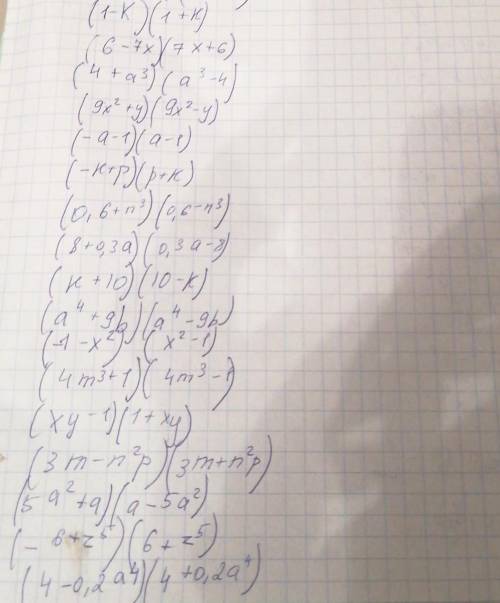 (1-к)(1+к)
(6-7x)(7x+6)
(4+a³)(a³-4)
(9x²+y)(9x²-y)
(-a-1)(a-1)
(-к+p)(p+к)
(0,6+n³)(0,6-n³)
(8+0,3a)(0,3a-8)
(к+10)(10-к)
(a⁴+9b)(a⁴-9b)
(-1-x²)(x²-1)
(4m³+1)(4m³-1)
(xy-1)(1+xy)
(3m-n²p)(3m+n²p)
(5a²+a)(a-5a²)
(-6+z⁵)(6+z⁵)
(4-0,2a⁴)(4+0,2a⁴)